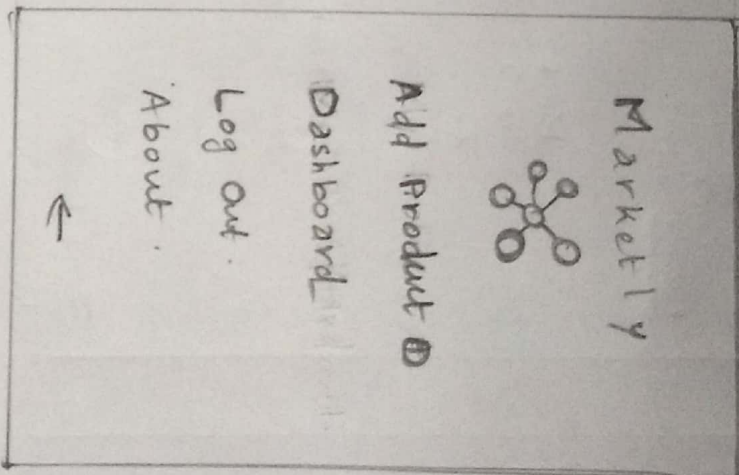 Marketly
Add Product
Dashboard
Log out.
About.